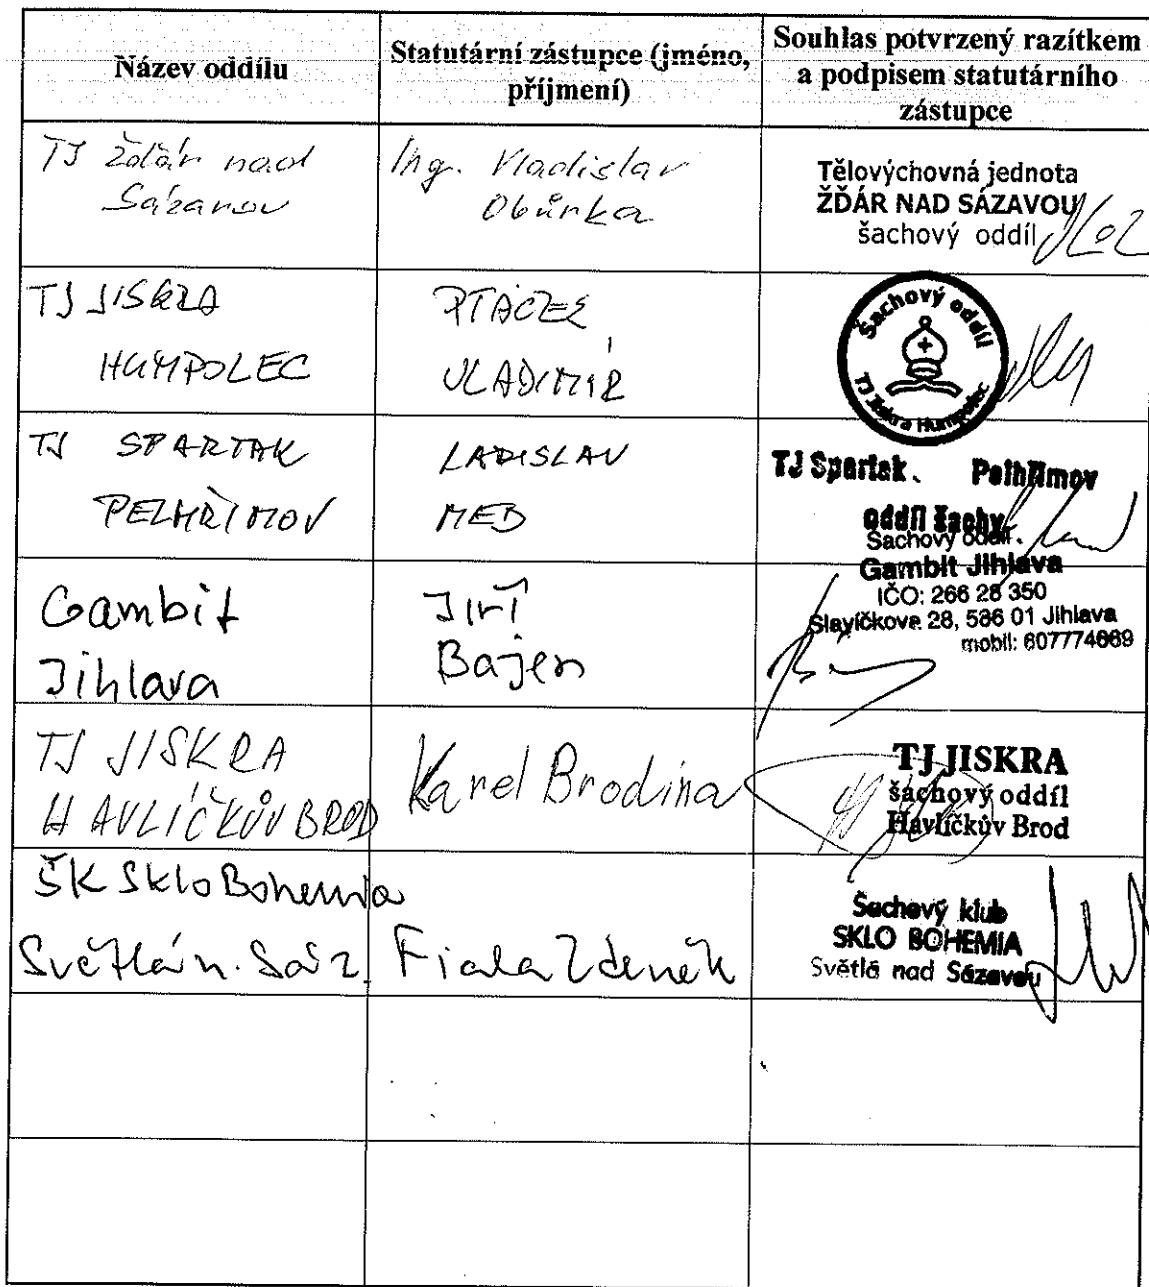 Název oddílu
Statutární zástupce (jméno,
příjmení)
Souhlas potvrzený razítkem
a podpisem statutárního
zástupce
TJ Žďár nad
Sázavou
Ing. Vladislav
Obůrka
Tělovýchovná jednota
ŽĎÁR NAD SÁZAVOU
šachový oddíl
TJ JISKRA
HUMPOLEC
PTÁČEK
VLADIMÍR
Šachový oddíl
TJ Jiskra Humpolec
TJ SPARTAK
PELHŘIMOV
LADISLAV
MED
TJ Spartak Pelhřimov
oddíl šachy
Gambit
Jihlava
Jiří
Bajer
Šachový oddíl
Gambit Jihlava
IČO: 266 28 350
Slavíčkova 28, 586 01 Jihlava
mobil: 607774669
TJ JISKRA
HAVLÍČKŮV BROD
Karel Brodina
TJ JISKRA
šachový oddíl
Havlíčkův Brod
ŠK Sklo Bohemia
Světlá n. Sáz
Fiala Zdeněk
Šachový klub
SKLO BOHEMIA
Světlá nad Sázavou